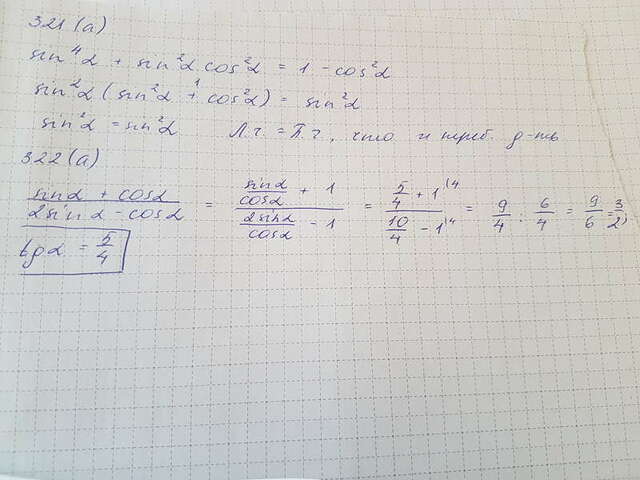 321 (a)
sin⁴α + sin²α cos²α = 1 - cos²α
sin²α (sin²α + cos²α) = sin²α
sin²α = sin²α Л.ч. = П.ч, что и треб. д-ть
322 (a)
(sinα + cosα)/(2sinα - cosα) = (sinα/cosα + 1)/(2sinα/cosα - 1) = (5/4 + 1\4)/(10/4 - 1\4) = 9/4 : 6/4 = 9/6 = 3/2
tgα = 5/4